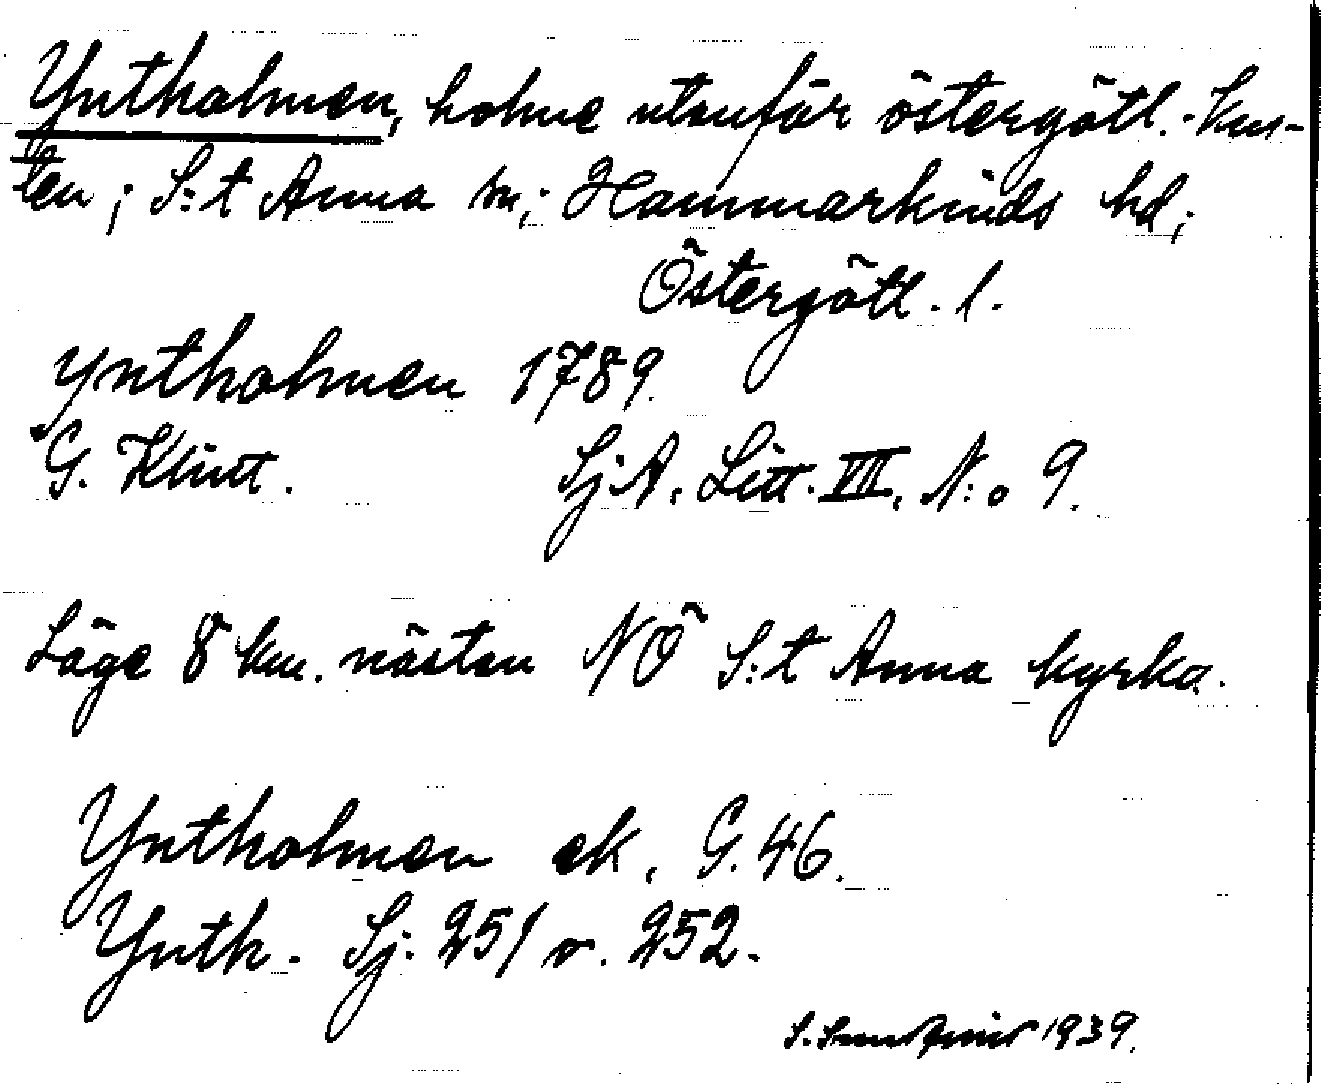 Yntholmen, holme utanför östergötl.-kus-
ten; S:t Anna sn; Hammarkinds hd;
Östergötl. l.
Yntholmen 1789.
G. Klint. Sj A. Litt. VIII. N:o 9.
Läge 8 km. nästan NÖ S:t Anna kyrka.
Yntholmen ek. G. 46.
Ynth. Sj. 251 o. 252.
S. 1939.